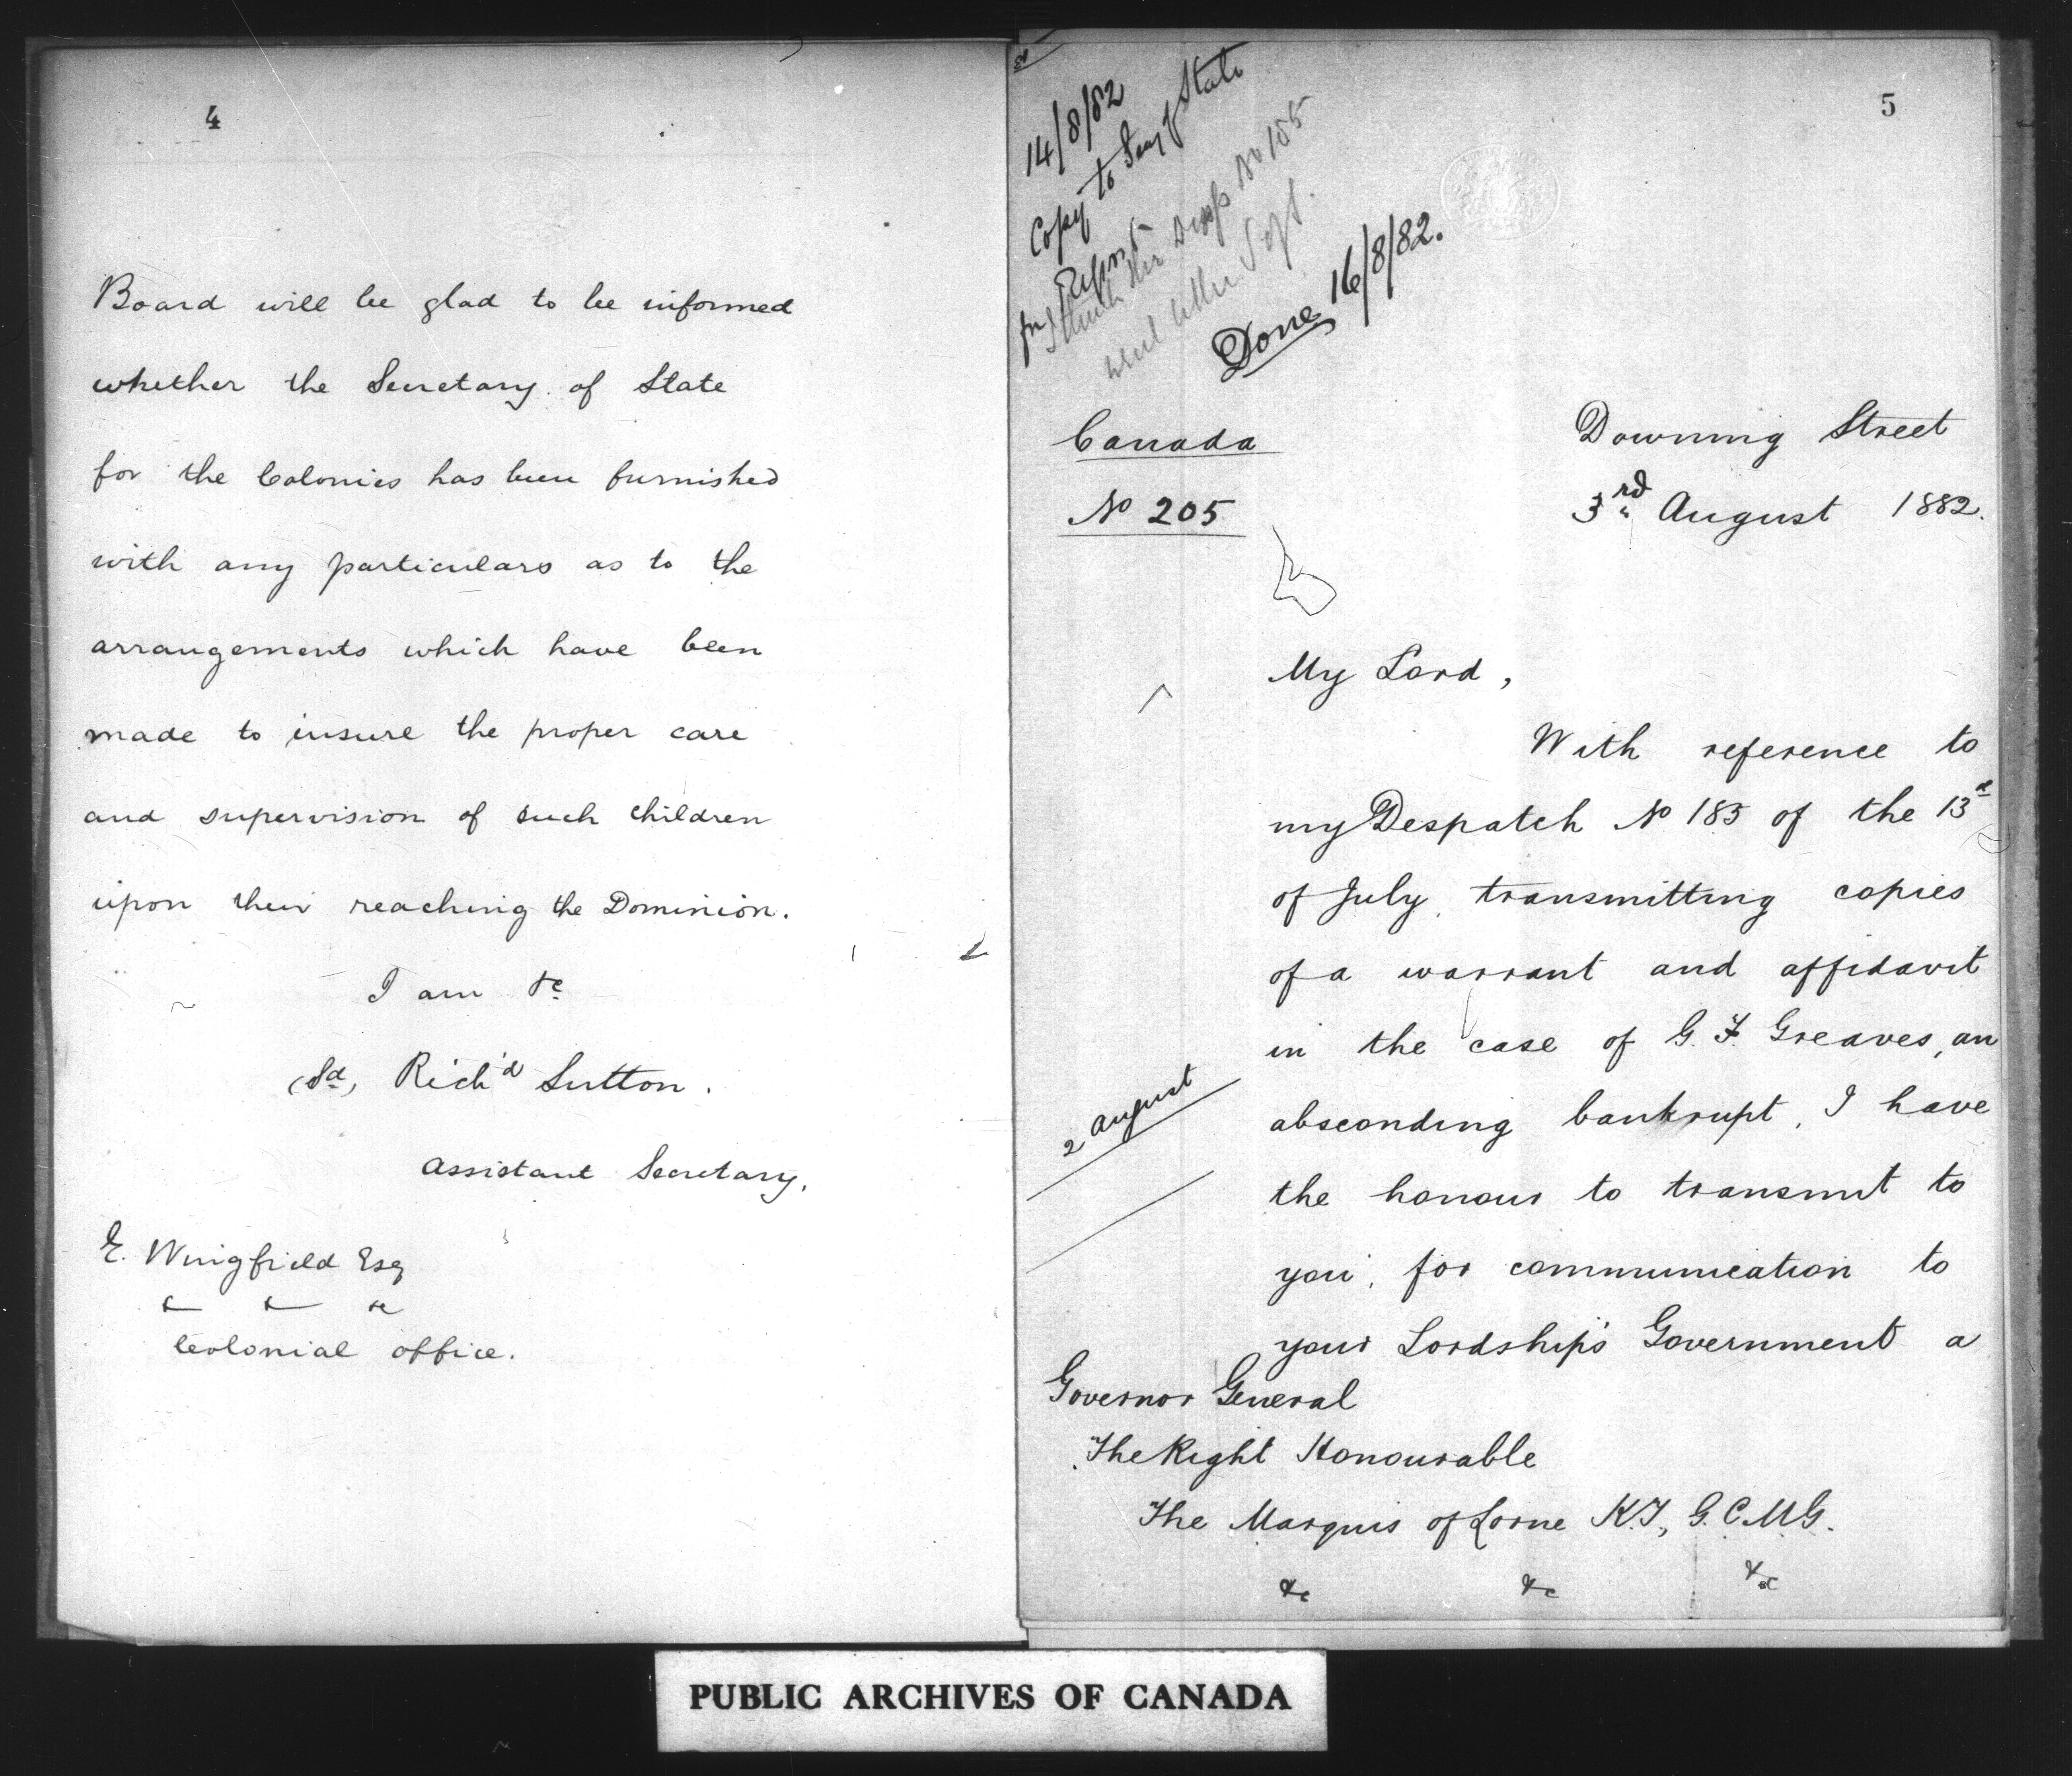 4
Board will be glad to be informed
whether the Secretary of State
for the Colonies has been furnished
with any particulars as to the
arrangements which have been
made to insure the proper care
and supervision of such children
upon their reaching the Dominion.
I am &c
(Sd) Rich'd Sutton.
Assistant Secretary.
E. Wingfield Esq
&c &c &c
Colonial Office.
5
14/8/82
Copy to Secy of State
for Report
Done 16/8/82.
Canada
No 205
Downing Street
3rd August 1882.
My Lord,
With reference to
my Despatch No 185 of the 13th
of July, transmitting copies
of a warrant and affidavit
in the case of G. F. Greaves, an
absconding bankrupt, I have
2 August
the honour to transmit to
you, for communication to
your Lordship's Government a
Governor General
The Right Honourable
The Marquis of Lorne K.T., G.C.M.G.
&c &c &c
PUBLIC ARCHIVES OF CANADA